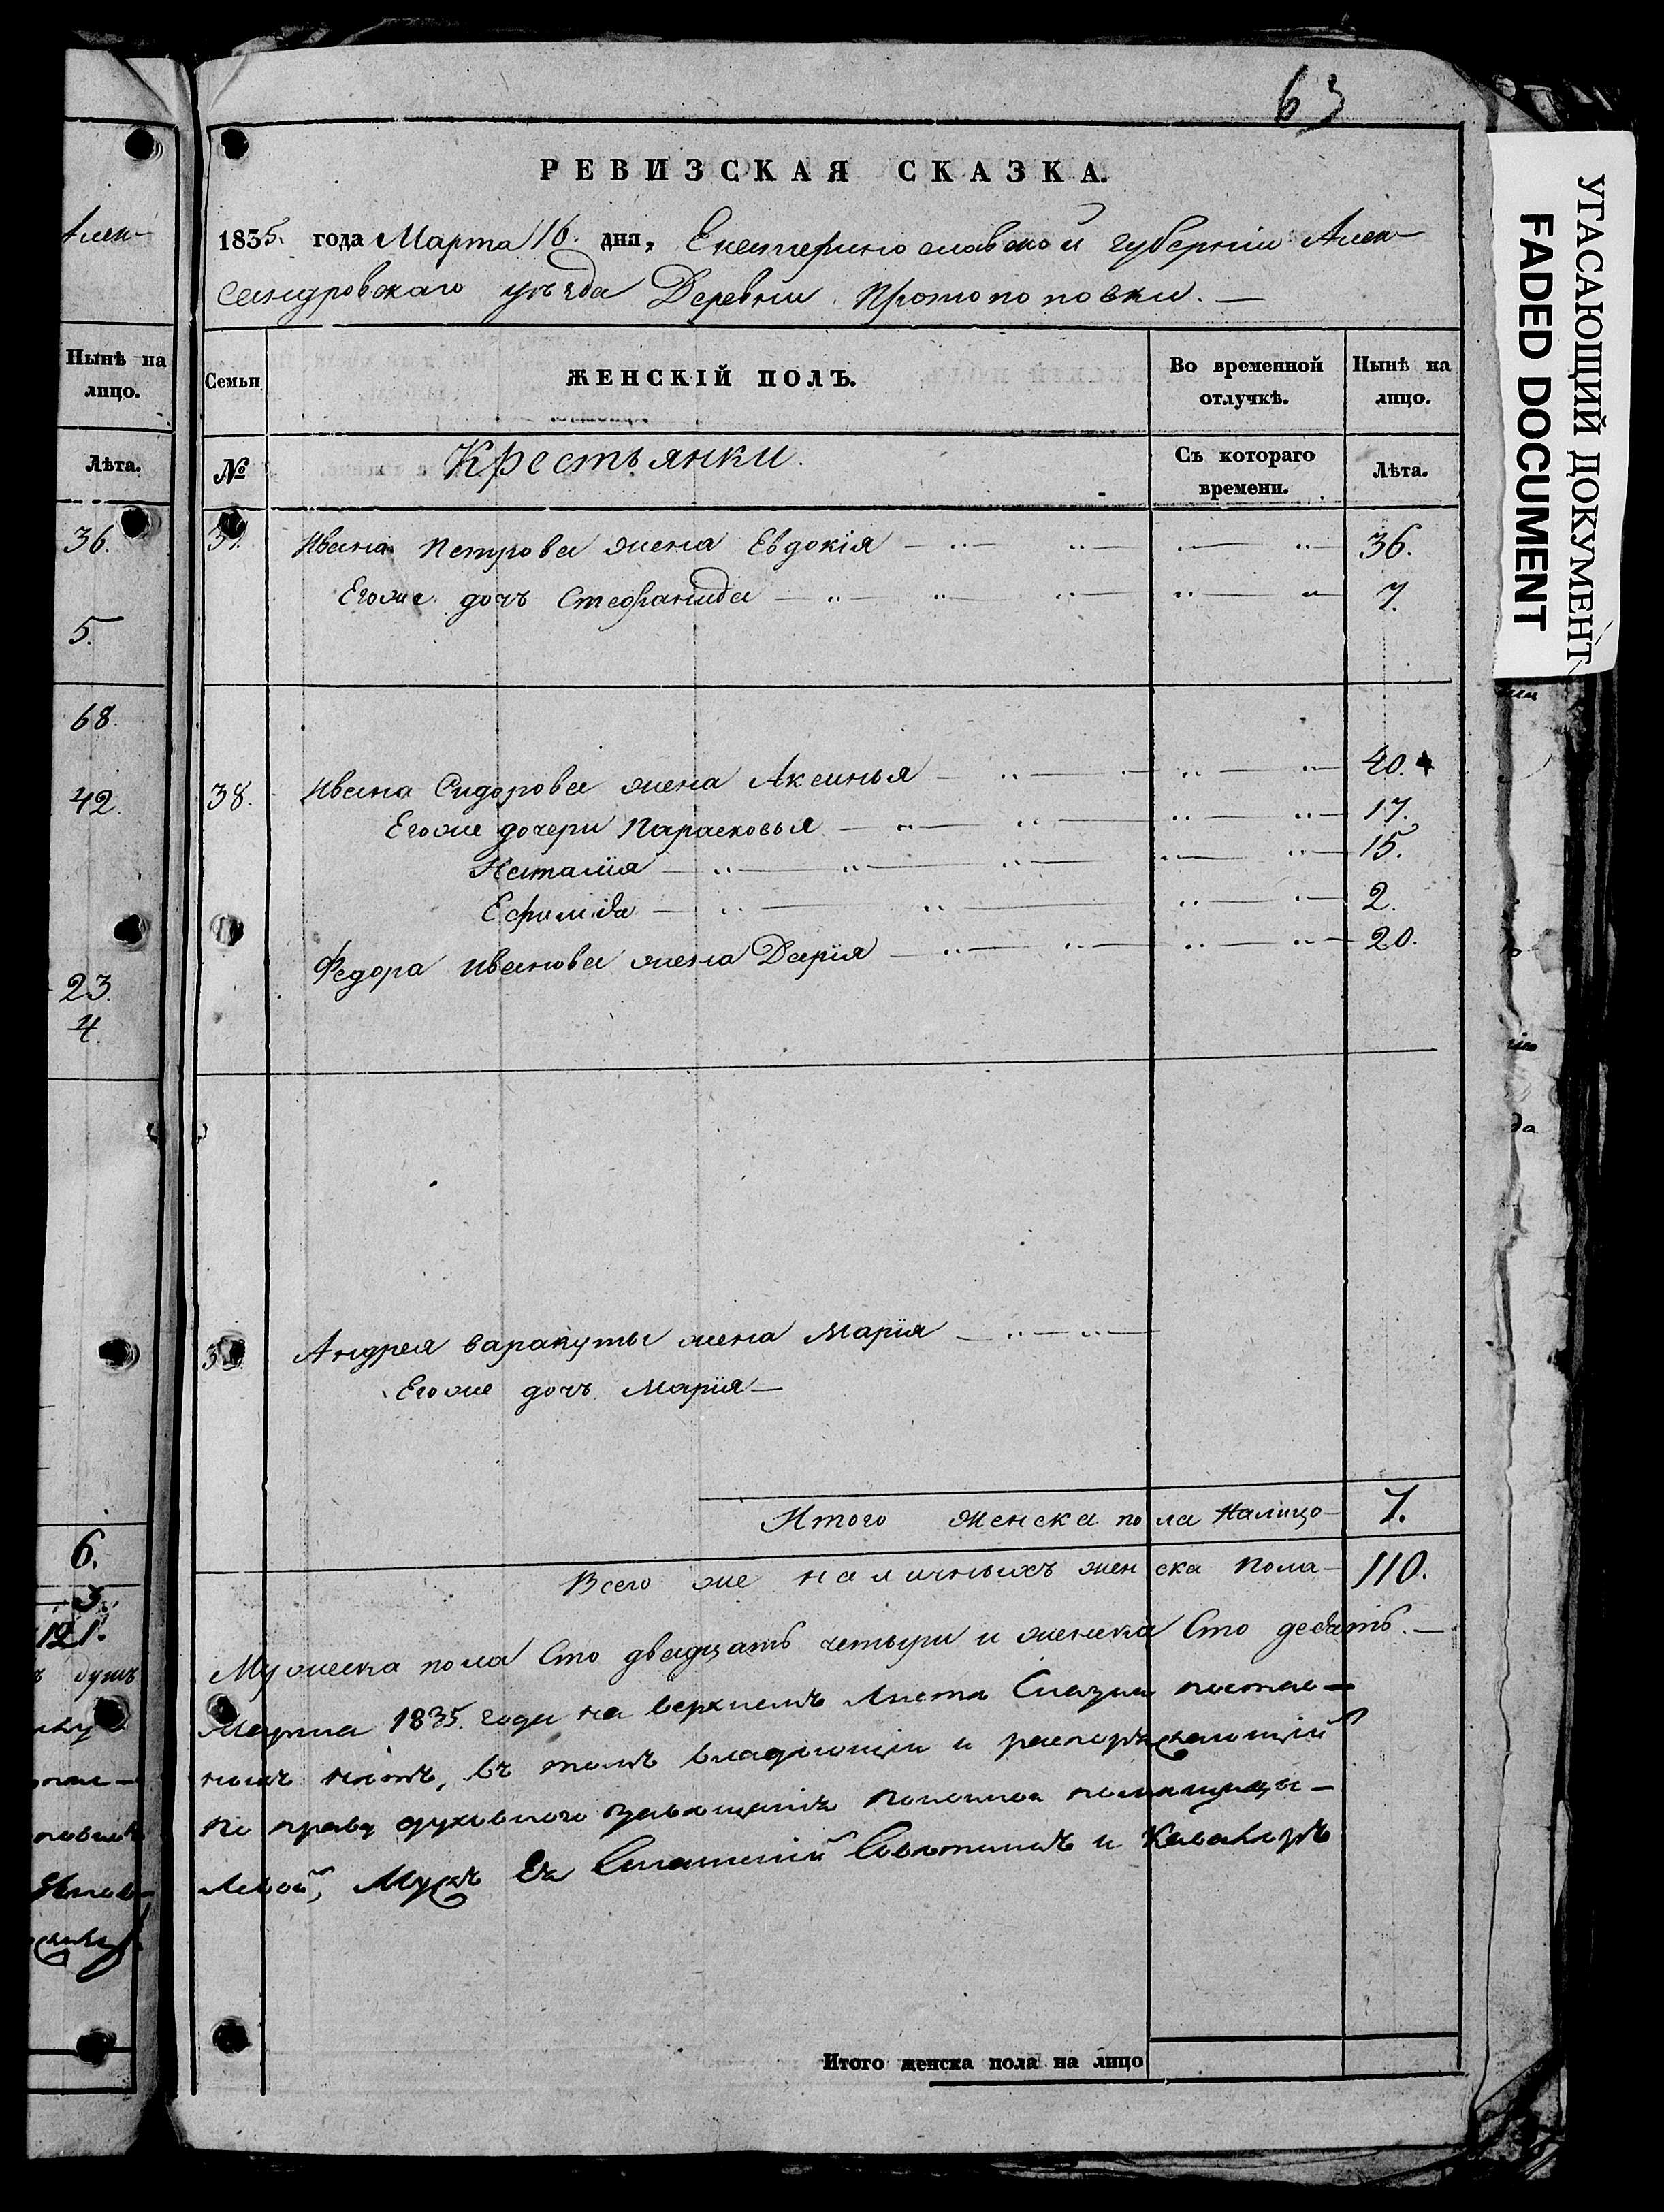 63
РЕВИЗСКАЯ СКАЗКА.
1835. года Марта 16. дня, Екатеринославской губерніи Алек-
сандровскаго уѣзда Деревни Протопоповки. —
Семьи
ЖЕНСКІЙ ПОЛЪ.
Во временной отлучкѣ.
Нынѣ на лицо.
№
Крестьянки.
Съ котораго времени.
Лѣта.
Ивана Петрова жена Евдокія 36.
Егоже дочь Стефанида 7.
38. Ивана Сидорова жена Аксинья 40.
Егоже дочери Парасковья 17.
Наталія 15.
Ефимія 2.
Федора Иванова жена Дарія 20.
Андрея Варакуты жена Марія
Егоже дочь Марія
Итого женска пола налицо 7.
Всего же наличныхъ женска пола 110.
Мужеска пола Сто двадцать четыри и женска Сто десять. —
Марта 1835. года на верхнемъ листе Сказки
нетъ, въ томъ владѣющій и распоряжающій
по праву духовнаго завещанія помещицы
Мужъ Ея Советникъ и Кавалеръ
Итого женска пола на лицо
Алек-
Нынѣ на лицо.
Лѣта.
36.
5.
68.
42.
23.
4.
6.
121.
душъ
УГАСАЮЩИЙ ДОКУМЕНТ
FADED DOCUMENT